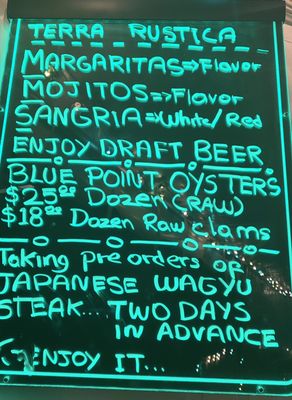 TERRA RUSTICA
MARGARITAS⇒Flavor
MOJITOS⇒Flavor
SANGRIA⇒White/Red
ENJOY DRAFT BEER
BLUE POINT OYSTERS
$25.00 Dozen (RAW)
$18.00 Dozen Raw Clams
Taking pre orders of
JAPANESE WAGYU
STEAK... TWO DAYS
IN ADVANCE
ENJOY IT...